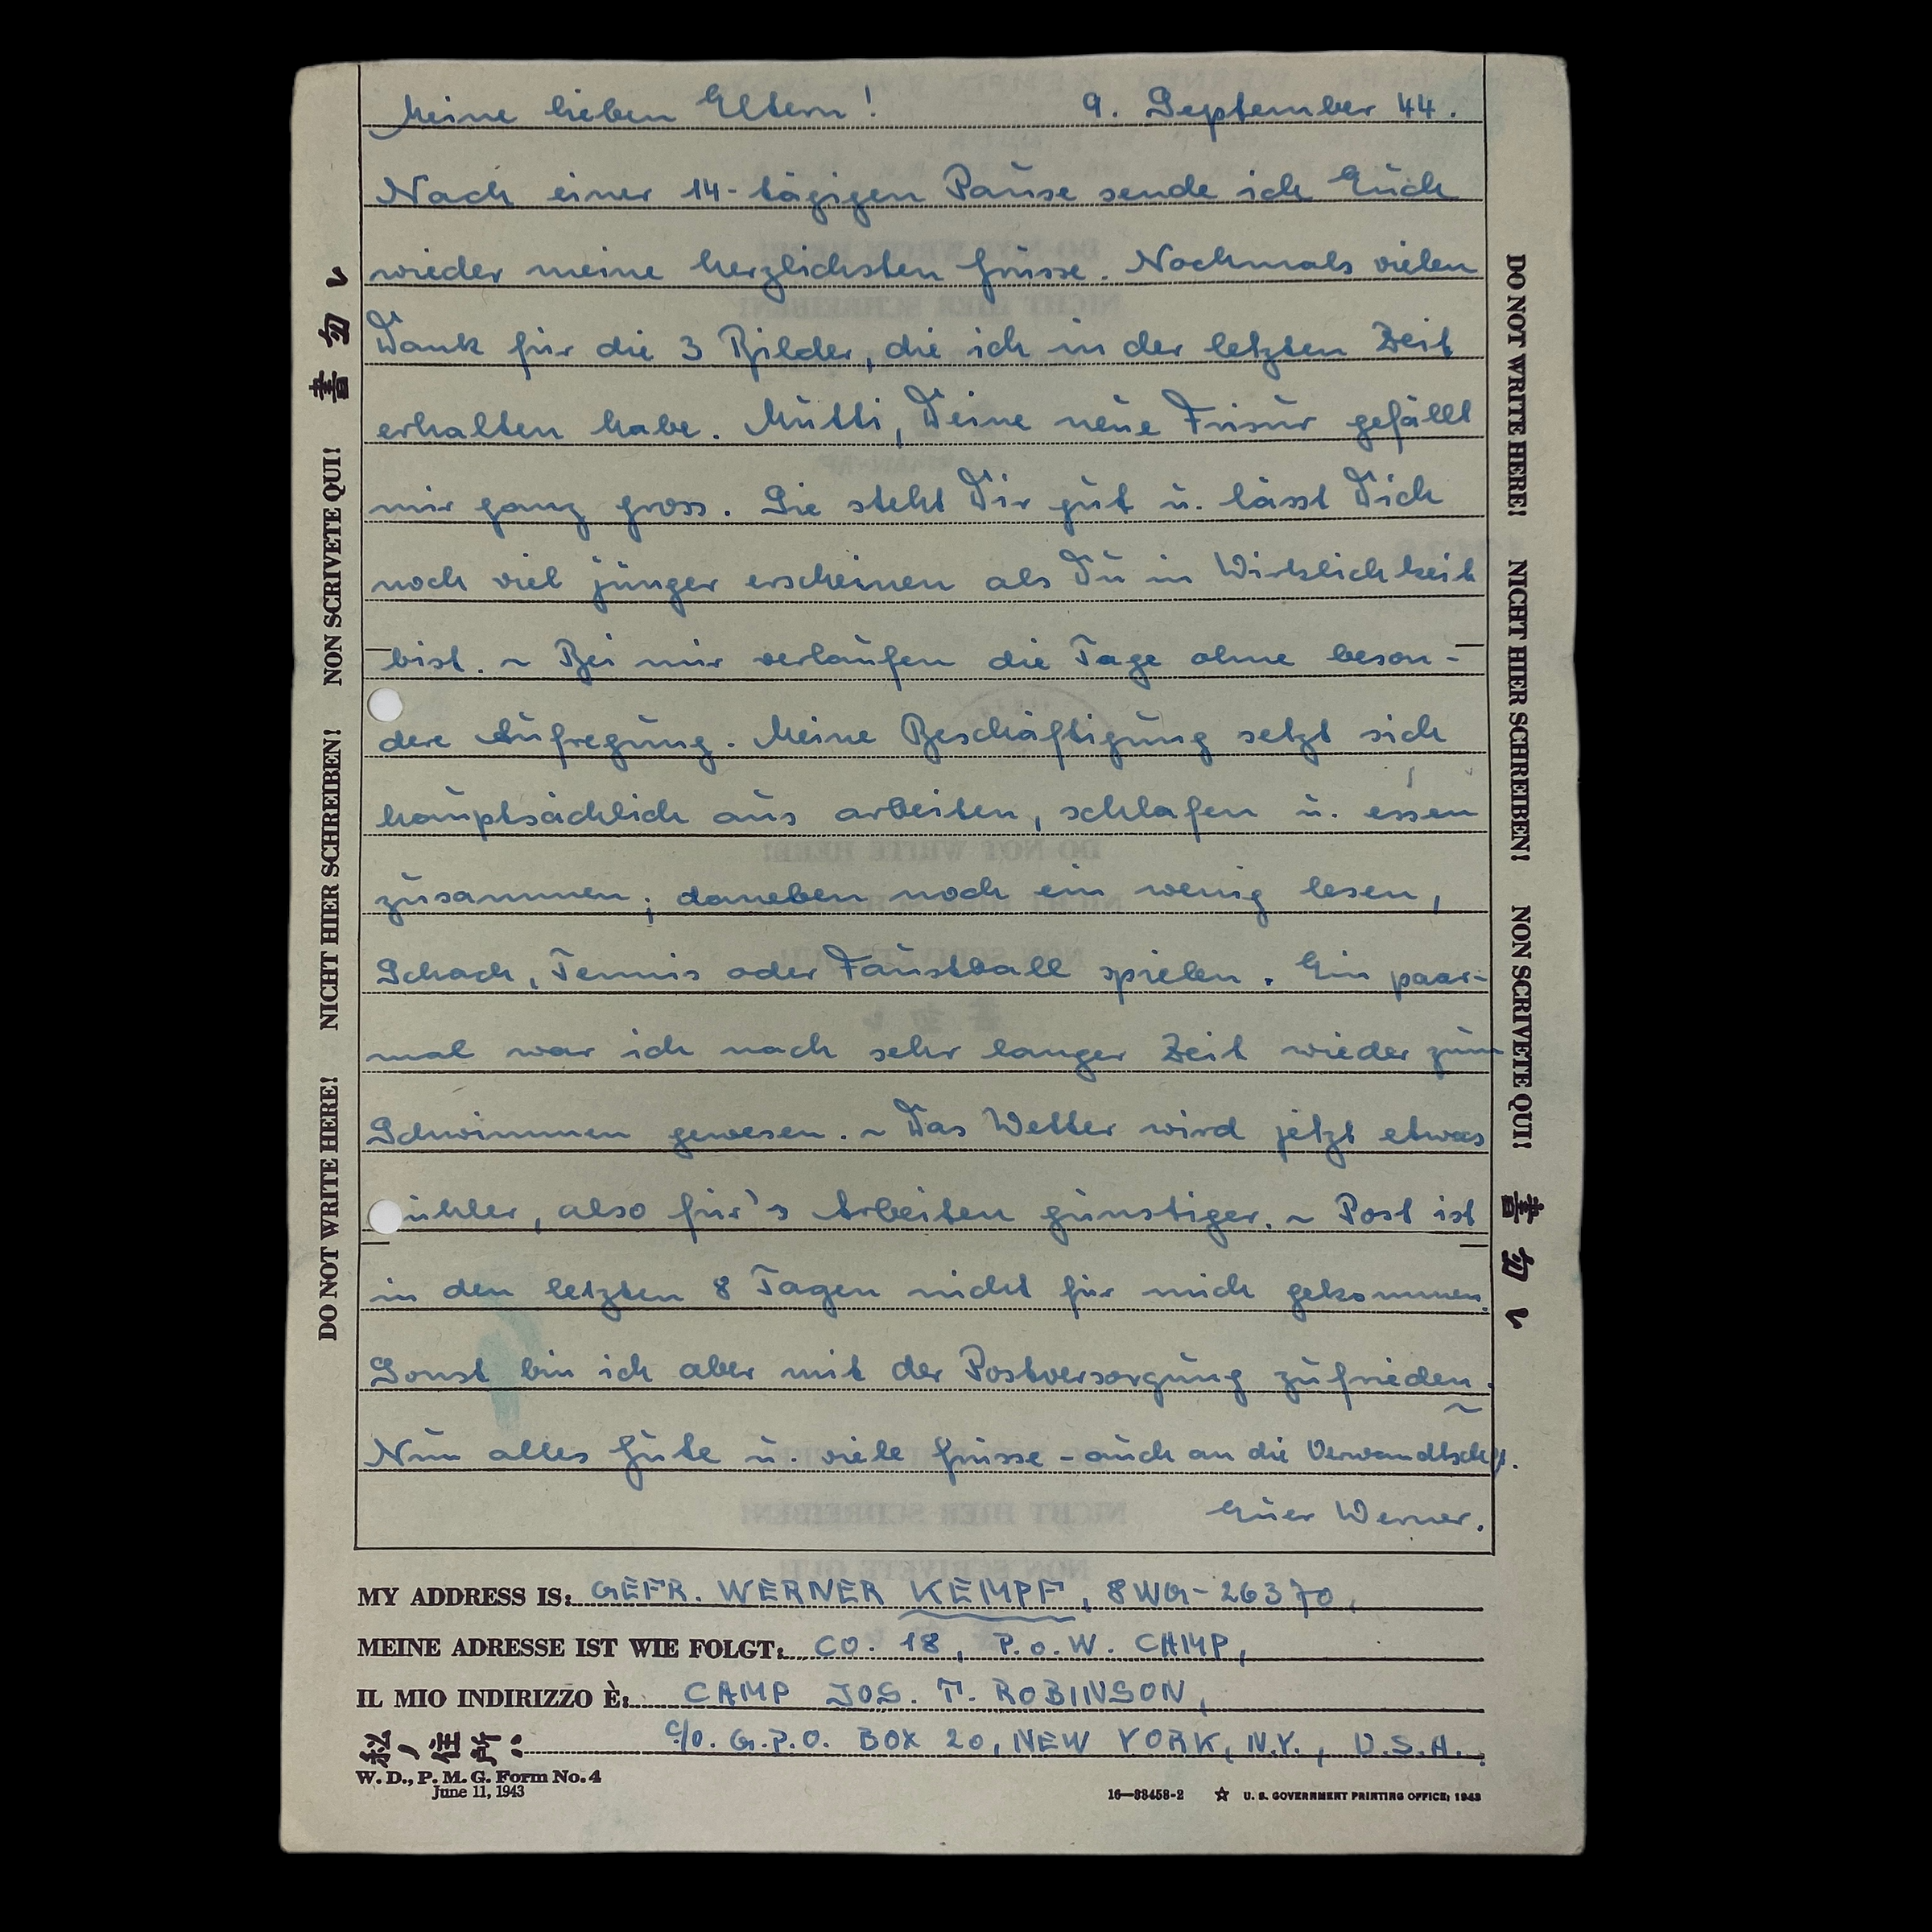 Meine lieben Eltern! 9. September 44.
Nach einer 14-tägigen Pause sende ich Euch
wieder meine herzlichsten Grüsse. Nochmals vielen
Dank für die 3 Bilder, die ich in der letzten Zeit
erhalten habe. Mutti, Deine neue Frisur gefällt
mir ganz gross. Sie steht Dir gut u. lässt Dich
noch viel jünger erscheinen als Du in Wirklichkeit
bist. ~ Bei mir verlaufen die Tage ohne beson-
dere Aufregung. Meine Beschäftigung setzt sich
hauptsächlich aus arbeiten, schlafen u. essen
zusammen; daneben noch ein wenig lesen,
Schach, Tennis oder Faustball spielen. Ein paar-
mal war ich nach sehr langer Zeit wieder zum
Schwimmen gewesen. ~ Das Wetter wird jetzt etwas
ühler, also für's Arbeiten günstiger. ~ Post ist
in den letzten 8 Tagen nicht für mich gekommen.
Sonst bin ich aber mit der Postversorgung zufrieden. ~
Nun alles Gute u. viele Grüsse - auch an die Verwandtsch.
Euer Werner.
MY ADDRESS IS: GEFR. WERNER KEMPF, 8WG-26370,
MEINE ADRESSE IST WIE FOLGT: CO. 18, P.o.W. CAMP,
IL MIO INDIRIZZO È: CAMP JOS. T. ROBINSON,
私ノ住所: C/O. G.P.O. BOX 20, NEW YORK, N.Y., U.S.A.
W. D., P. M. G. Form No. 4
June 11, 1943
16—33458-2 ☆ U. S. GOVERNMENT PRINTING OFFICE: 1943
DO NOT WRITE HERE! NICHT HIER SCHREIBEN! NON SCRIVETE QUI! 書勿レ
DO NOT WRITE HERE! NICHT HIER SCHREIBEN! NON SCRIVETE QUI! 書勿レ